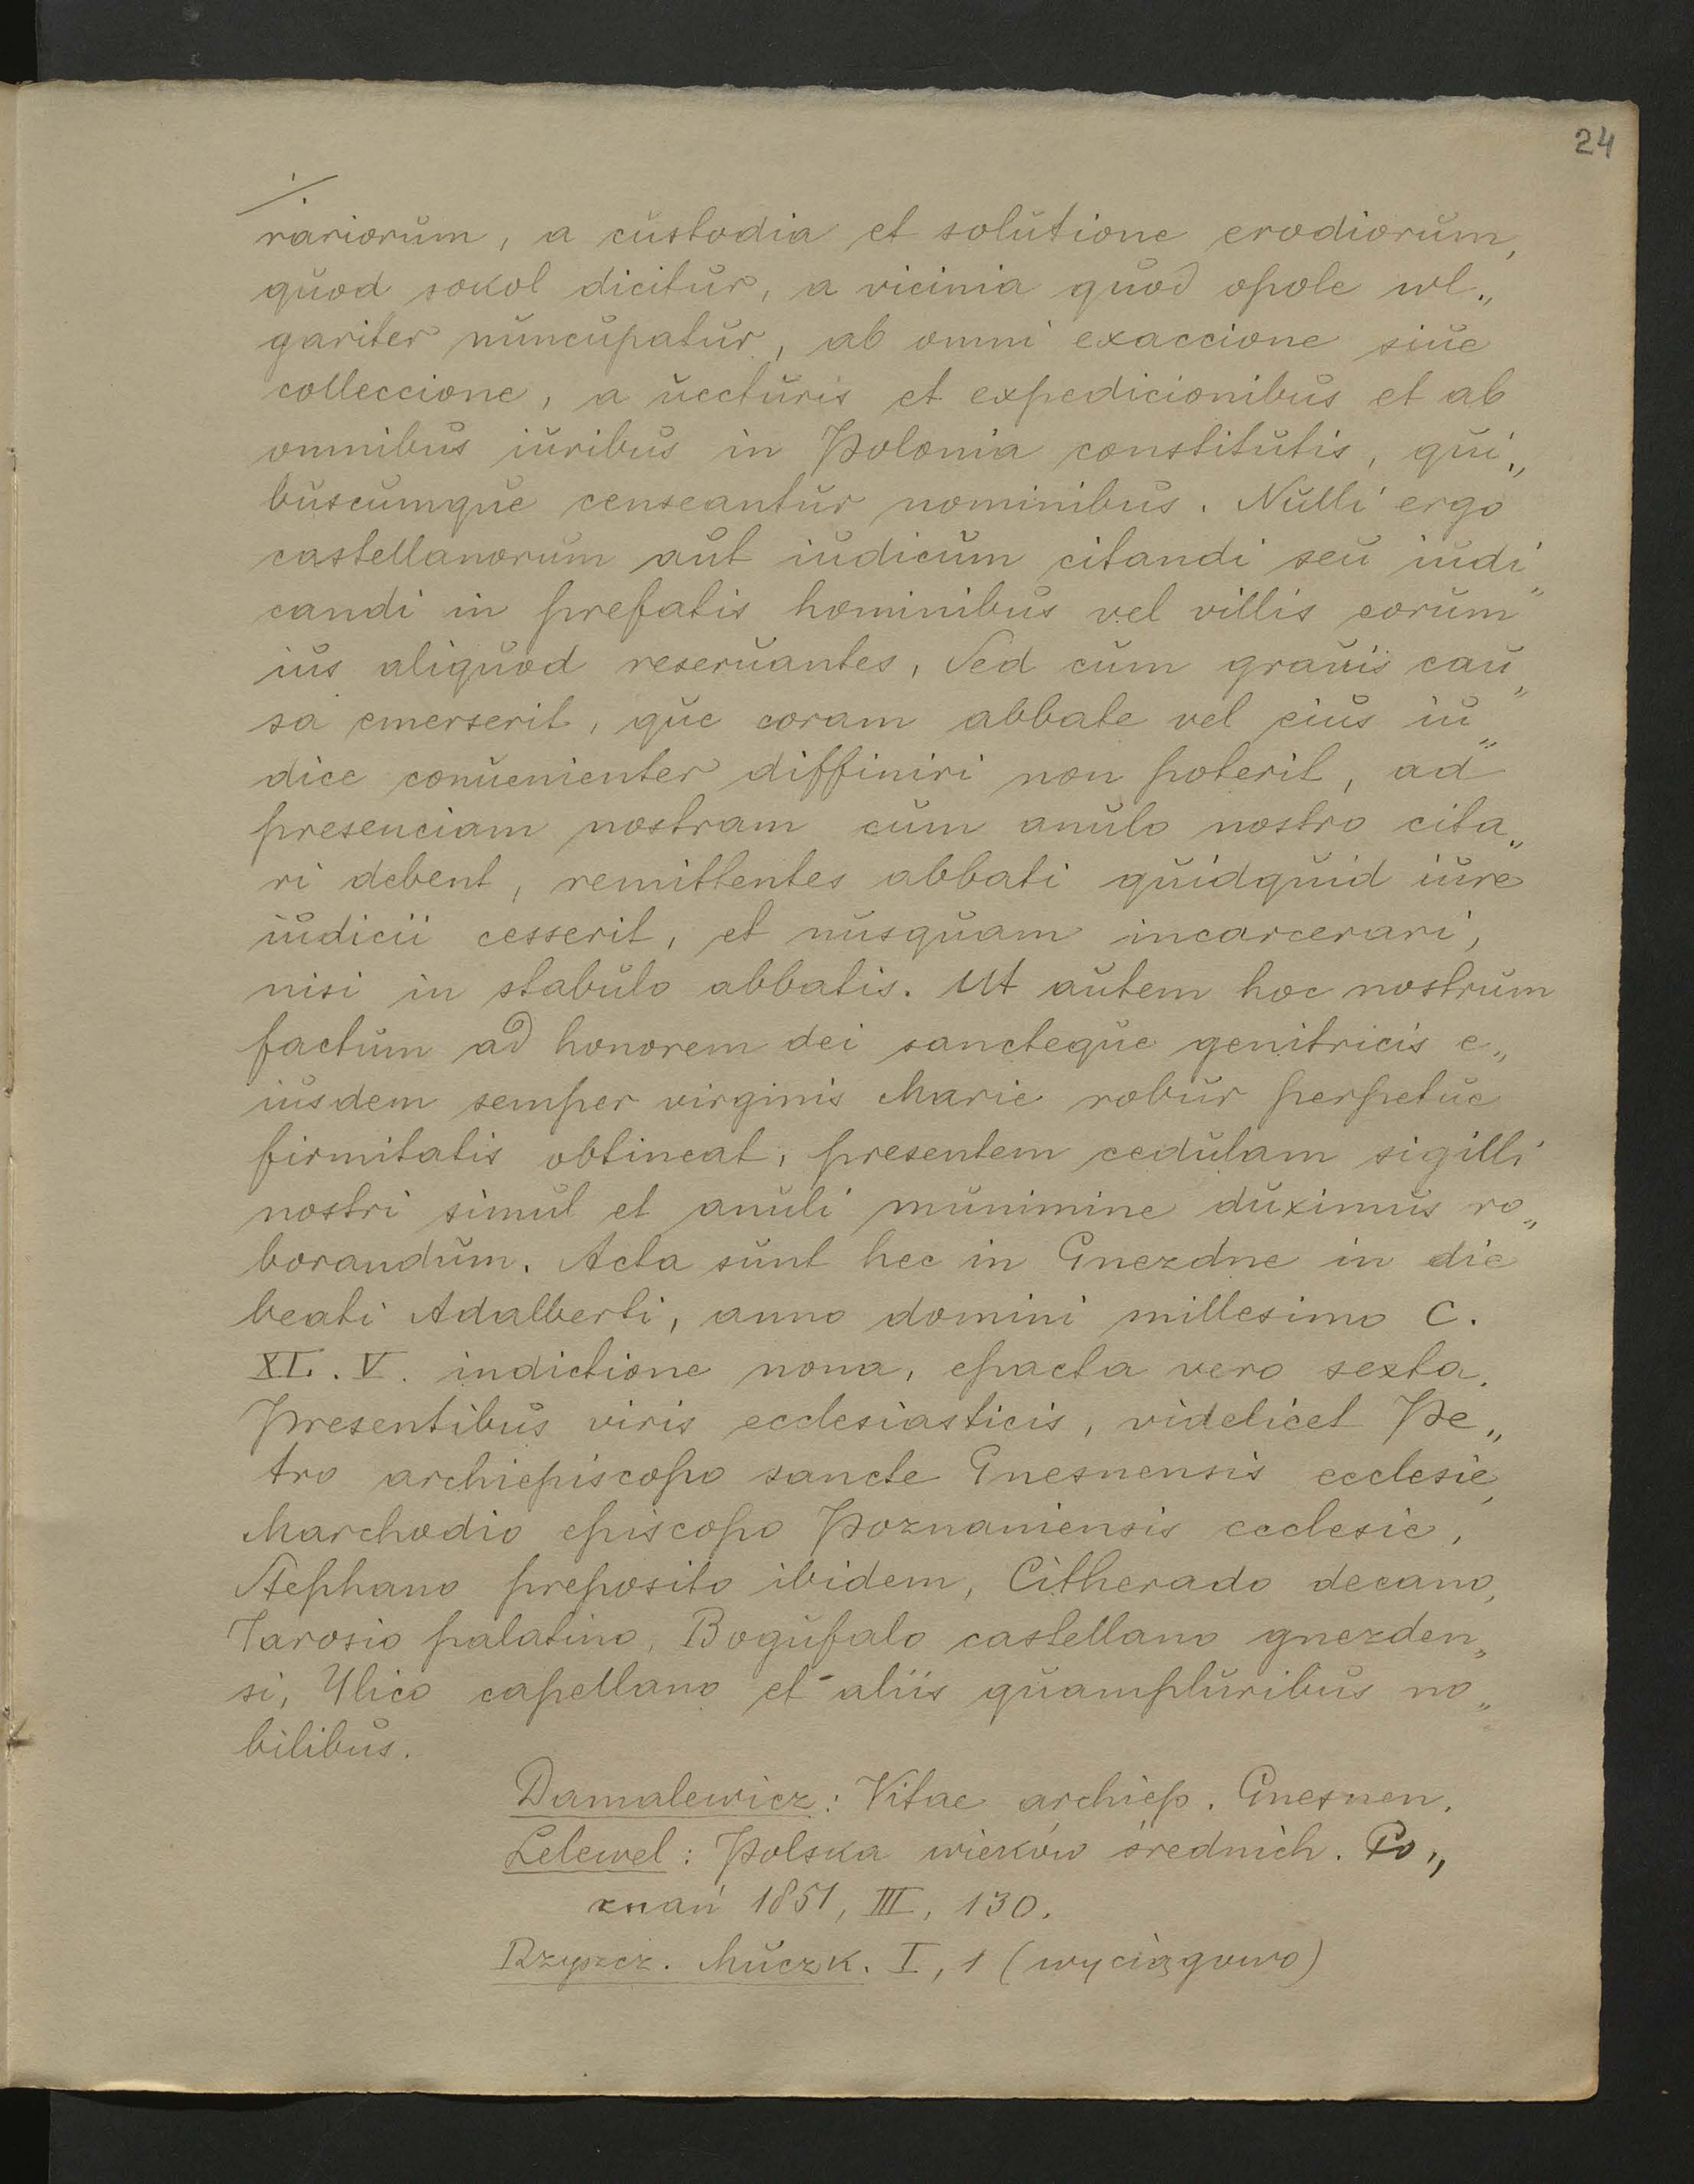 24
./.
rariorum, a custodia et solutione erodiorum,
quod sokol dicitur, a vicinia quod opole wl„
gariter nuncupatur, ab omni exaccione siue
colleccione, a uecturis et expedicionibus et ab
omnibus iuribus in Polonia constitutis, qui„
buscumque censeantur nominibus. Nulli ergo
castellanorum aut iudicum citandi seu iudi„
candi in prefatis hominibus vel villis eorum
ius aliquod reseruantes, Sed cum grauis cau„
sa emerserit, que coram abbate vel eius iu„
dice conuenienter diffiniri non poterit, ad
presenciam nostram cum anulo nostro cita„
ri debent, remittentes abbati quidquid iure
iudicii cesserit, et nusquam incarcerari,
nisi in stabulo abbatis. Ut autem hoc nostrum
factum ad honorem dei sancteque genitricis e„
iusdem semper virginis Marie robur perpetue
firmitatis obtineat, presentem cedulam sigilli
nostri simul et anuli munimine duximus ro„
borandum. Acta sunt hec in Gnezdne in die
beati Adalberti, anno domini millesimo C.
XL. V. indictione nona, epacta vero sexta.
Presentibus viris ecclesiasticis, videlicet Pe„
tro archiepiscopo sancte Gnesnensis ecclesie,
Marchodio episcopo Poznaniensis ecclesie,
Stephano preposito ibidem, Citherado decano,
Jarosio palatino, Bogufalo castellano gnezden„
si, Ylico capellano et aliis quampluribus no„
bilibus.
Damalewicz: Vitae archiep. Gnesnen.
Lelewel: Polska wieków średnich. Po„
znań 1851, III, 130.
Rzyszcz. Muczk. I, 1 (wyciągowo)